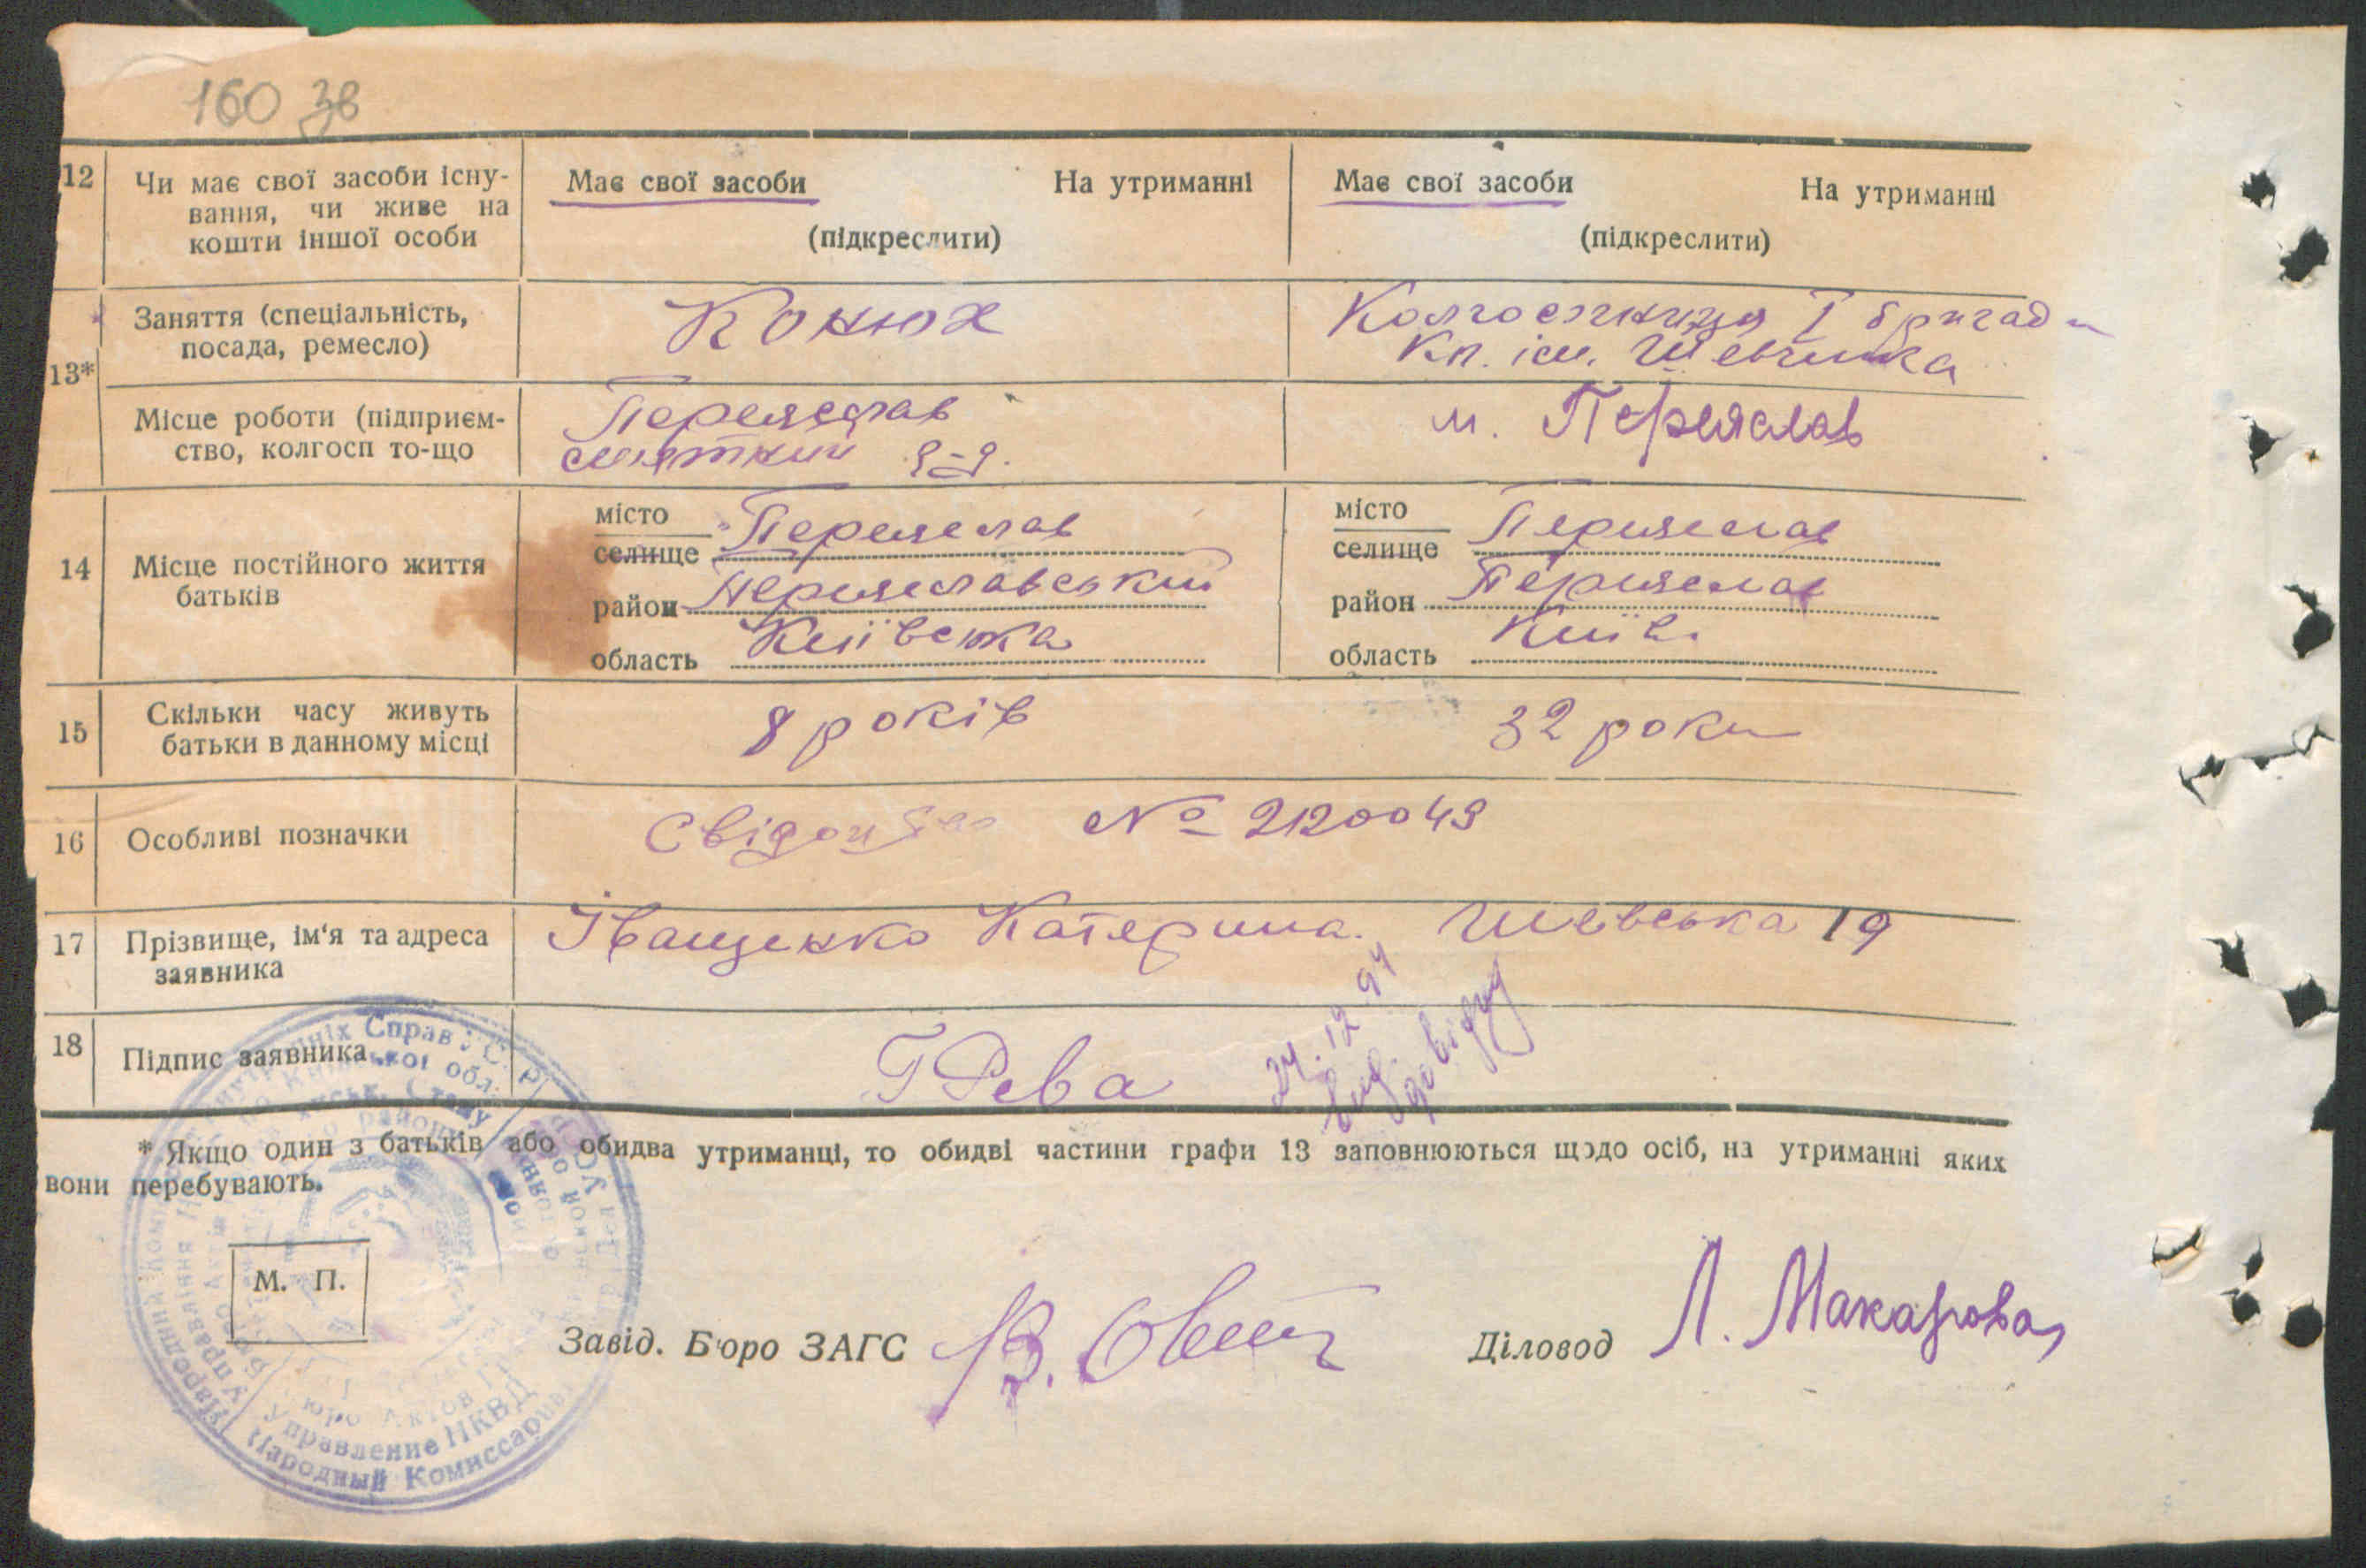 160 зв
12 Чи має свої засоби існу- Має свої засоби На утриманні Має свої засоби На утриманні
вання, чи живе на
кошти іншої особи (підкреслити) (підкреслити)
13* Заняття (спеціальність, Конюх Колгоспниця I бригади
посада, ремесло) Кп. ім. Шевченка
Місце роботи (підприєм- Переяслав м. Переяслав
ство, колгосп то-що
14 Місце постійного життя місто Переяслав місто Переяслав
батьків селище селище
район Переяславський район Переяслав
область Київська область Київ.
15 Скільки часу живуть 8 років 32 роки
батьки в данному місці
16 Особливі позначки № 2120049
17 Прізвище, ім'я та адреса Іващенко Катерина. 19
заявника
18 Підпис заявника Г Рева
24.12.94
вид.
довідку
* Якщо один з батьків або обидва утриманці, то обидві частини графи 13 заповнюються щодо осіб, на утриманні яких
вони перебувають.
М. П.
Завід. Бюро ЗАГС В. Діловод Л. Макарова
Справ У.С.Р.Р.
Київської обл.
Управление НКВД
Народный Комиссариат